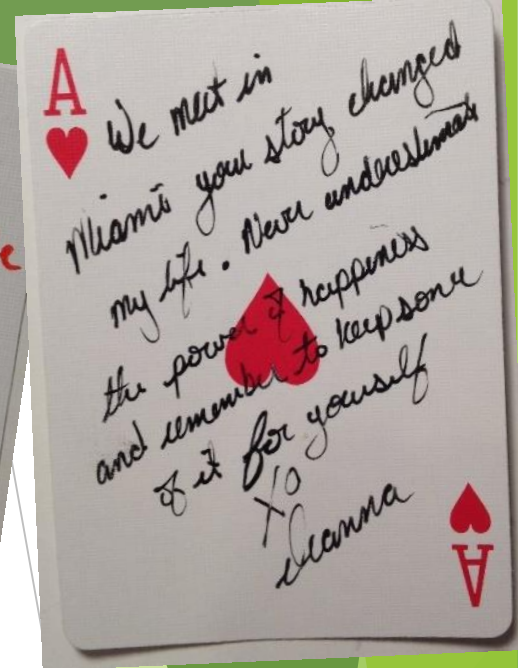 A
We meet in
Miami your story changed
my life. Never underestimate
the power of happiness
and remember to keep some
of it for yourself
XO
Deanna
A
e